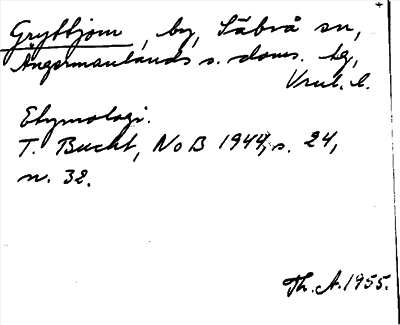 Gryttjom, by, Säbrå sn,
Ångermanlands s. doms. hg,
Vnrl. l.
Etymologi.
T. Bucht, NoB 1944, s. 24,
n. 32.
Th. A. 1955.